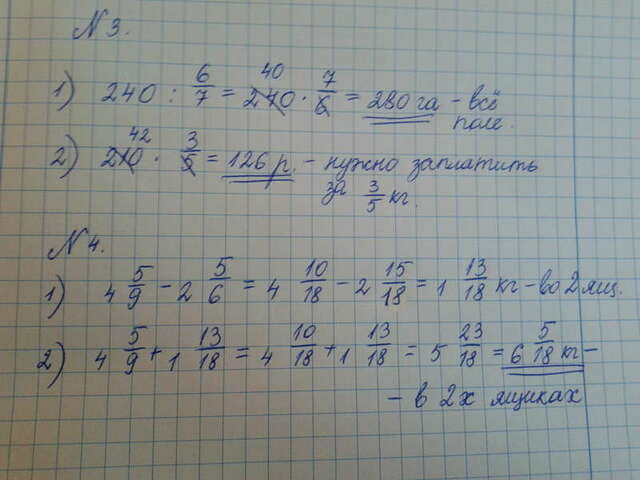 N 3.
1) 240 : 6/7 = 240 40 · 7/6 = 280 га - всё
поле.
2) 210 42 · 3/5 = 126 р. - нужно заплатить
за 3/5 кг.
N 4.
1) 4 5/9 - 2 5/6 = 4 10/18 - 2 15/18 = 1 13/18 кг - во 2 ящ.
2) 4 5/9 + 1 13/18 = 4 10/18 + 1 13/18 = 5 23/18 = 6 5/18 кг -
- в 2х ящиках